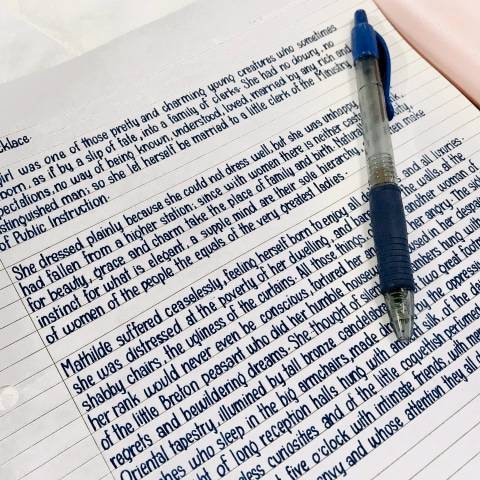 cklace
girl was one of those pretty and charming young creatures who sometimes
born, as if by a slip of fate, into a family of clerks. She had no dowry, no
expectations, no way of being known, understood, loved, married by any rich and
distinguished man; so she let herself be married to a little clerk of the Ministry
of Public Instruction.
She dressed plainly because she could not dress well, but she was unhappy
had fallen from a higher station; since with women there is neither caste
for beauty, grace and charm take the place of family and birth. Natural
instinct for what is elegant, a supple mind are their sole hierarchy make
of women of the people the equals of the very greatest ladies.
Mathilde suffered ceaselessly, feeling herself born to enjoy all and all luxuries.
she was distressed at the poverty of her dwelling, and bare the walls, at the
shabby chairs, the ugliness of the curtains. All those things another woman of
her rank would never even be conscious, tortured her an her angry. The sight
of the little Breton peasant who did her humble house in her despairing
regrets and bewildering dreams. She thought of hung with
Oriental tapestry, illumined by tall bronze candelabra two great foot
who sleep in the big armchairs, made drowsy by the oppressive
of long reception halls hung with silk, of the dainty
curiosities and of the little coquettish perfumed
at five o'clock with intimate friends, with men
envy and whose attention they all